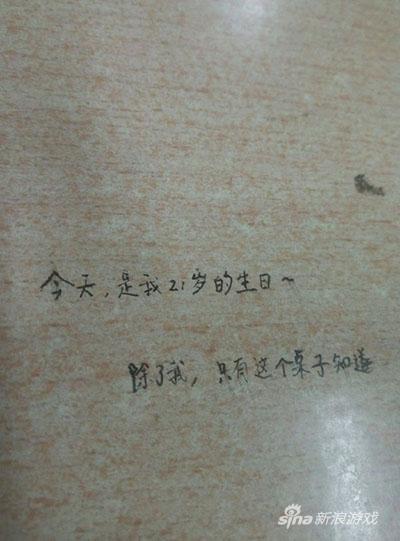 今天,是我21岁的生日~
除了我，只有这个桌子知道
sina新浪游戏